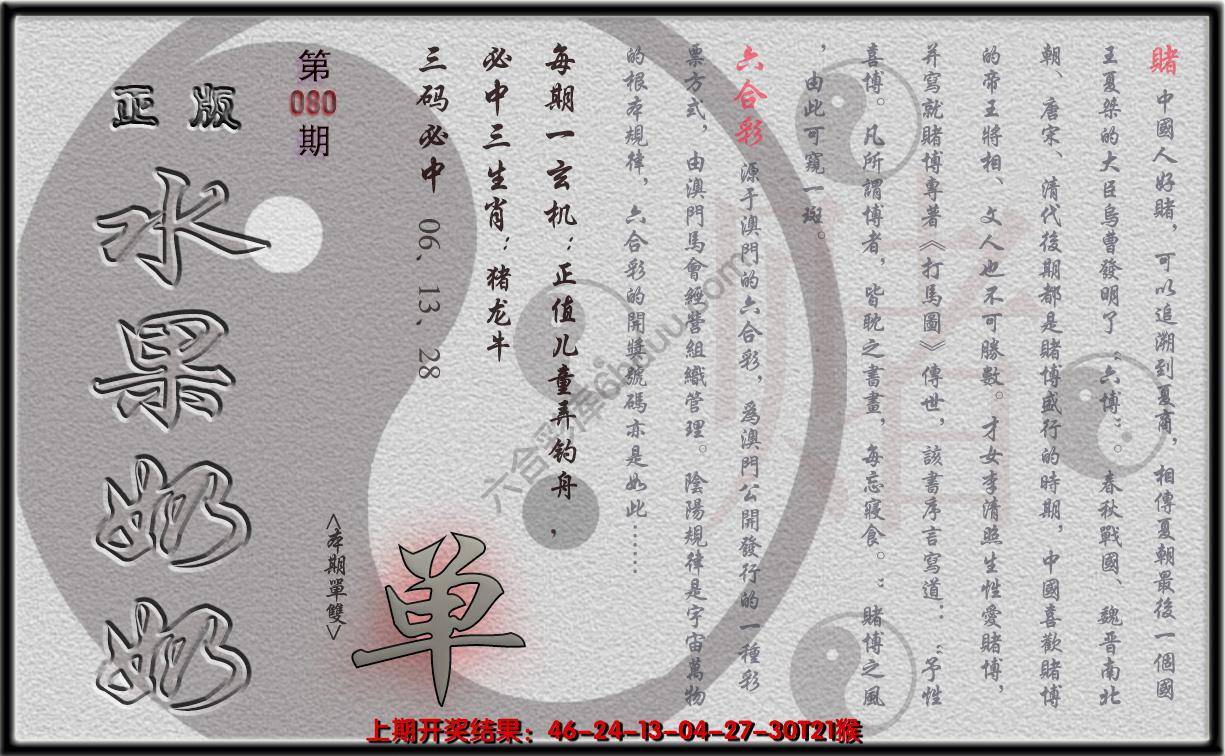 賭 中國人好賭，可以追溯到夏商，相傳夏朝最後一個國
王夏桀的大臣烏曹發明了“六博”。春秋戰國、魏晋南北
朝、唐宋、清代後期都是賭博盛行的時期，中國喜歡賭博
的帝王將相、文人也不可勝數。才女李清照生性愛賭博，
并寫就賭博專著《打馬圖》傳世，該書序言寫道：“予性
喜博。凡所謂博者，皆耽之書晝，每忘寢食。”賭博之風
，由此可窺一斑。
六合彩 源于澳門的六合彩，爲澳門公開發行的一種彩
票方式，由澳門馬會經營組織管理。陰陽規律是宇宙萬物
的根本規律，六合彩的開獎號碼亦是如此……
每期一玄机：正值儿童弄钓舟，
必中三生肖：猪龙牛
三码必中 06、13、28
第
080
期
<本期單雙>
单
正版
水果奶奶
六合彩库6huuu.com
上期开奖结果：46-24-13-04-27-30T21猴